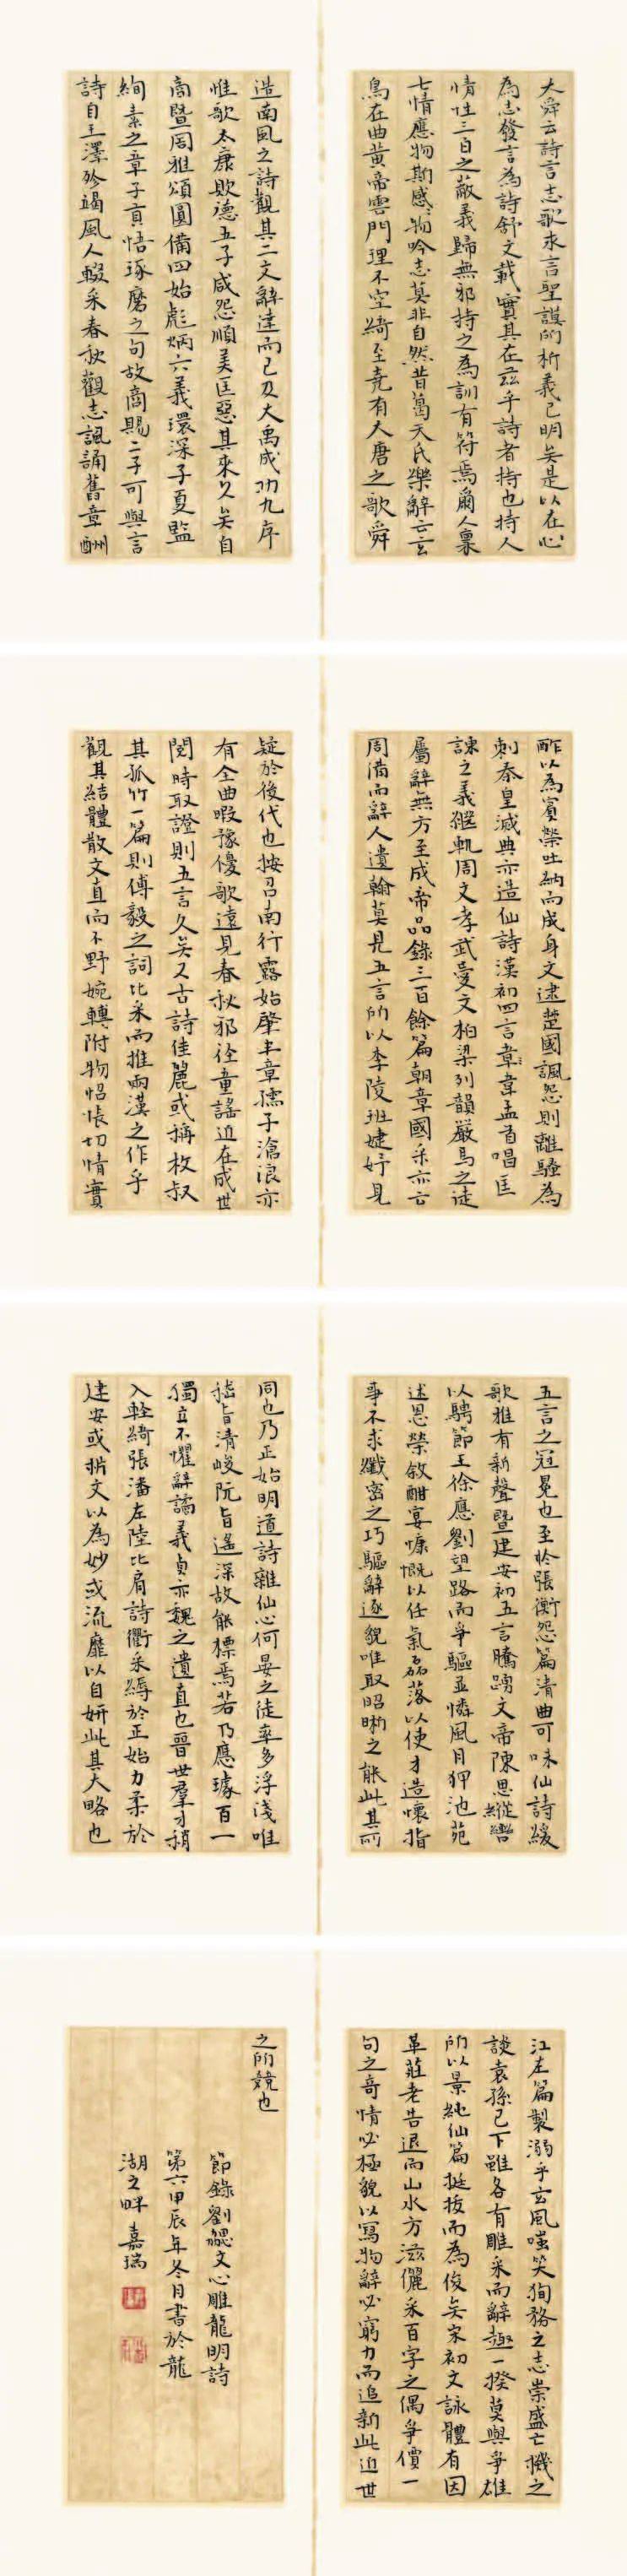 大舜云詩言志歌永言聖謨所析義已明矣是以在心
為志發言為詩舒文載實其在茲乎詩者持也持人
情性三百之蔽義歸無邪持之為訓有符焉爾人稟
七情應物斯感感物吟志莫非自然昔葛天氏樂辭云玄
鳥在曲黃帝雲門理不空綺至堯有大唐之歌舜
造南風之詩觀其二文辭達而已及大禹成功九序
惟歌太康敗德五子咸怨順美匡惡其來久矣自
商暨周雅頌圓備四始彪炳六義環深子夏監
絢素之章子貢悟琢磨之句故商賜二子可與言
詩自王澤殄竭風人輟采春秋觀志諷誦舊章酬
酢以為賓榮吐納而成身文逮楚國諷怨則離騷為
刺秦皇滅典亦造仙詩漢初四言韋孟首唱匡
諫之義繼軌周文孝武愛文柏梁列韻嚴馬之徒
屬辭無方至成帝品錄三百餘篇朝章國采亦云
周備而辭人遺翰莫見五言所以李陵班婕妤見
疑於後代也按召南行露始肇半章孺子滄浪亦
有全曲暇豫優歌遠見春秋邪徑童謠近在成世
閱時取證則五言久矣又古詩佳麗或稱枚叔
其孤竹一篇則傅毅之詞比采而推兩漢之作乎
觀其結體散文直而不野婉轉附物怊悵切情實
五言之冠冕也至於張衡怨篇清曲可味仙詩緩
歌雅有新聲暨建安初五言騰踴文帝陳思縱轡
以騁節王徐應劉望路而爭驅並憐風月狎池苑
述恩榮敘酣宴慷慨以任氣磊落以使才造懷指
事不求纖密之巧驅辭逐貌唯取昭晰之能此其所
同也乃正始明道詩雜仙心何晏之徒率多浮淺唯
嵇旨清峻阮旨遙深故能標焉若乃應璩百一
獨立不懼辭譎義貞亦魏之遺直也晉世羣才稍
入輕綺張潘左陸比肩詩衢采縟於正始力柔於
建安或析文以為妙或流靡以自妍此其大略也
江左篇製溺乎玄風嗤笑徇務之志崇盛亡機之
談袁孫已下雖各有雕采而辭趣一揆莫與爭雄
所以景純仙篇挺拔而為俊矣宋初文詠體有因
革莊老告退而山水方滋儷采百字之偶爭價一
句之奇情必極貌以寫物辭必窮力而追新此近世
之所競也
節錄劉勰文心雕龍明詩
第六甲辰年冬月書於龍
湖之畔 嘉瑞